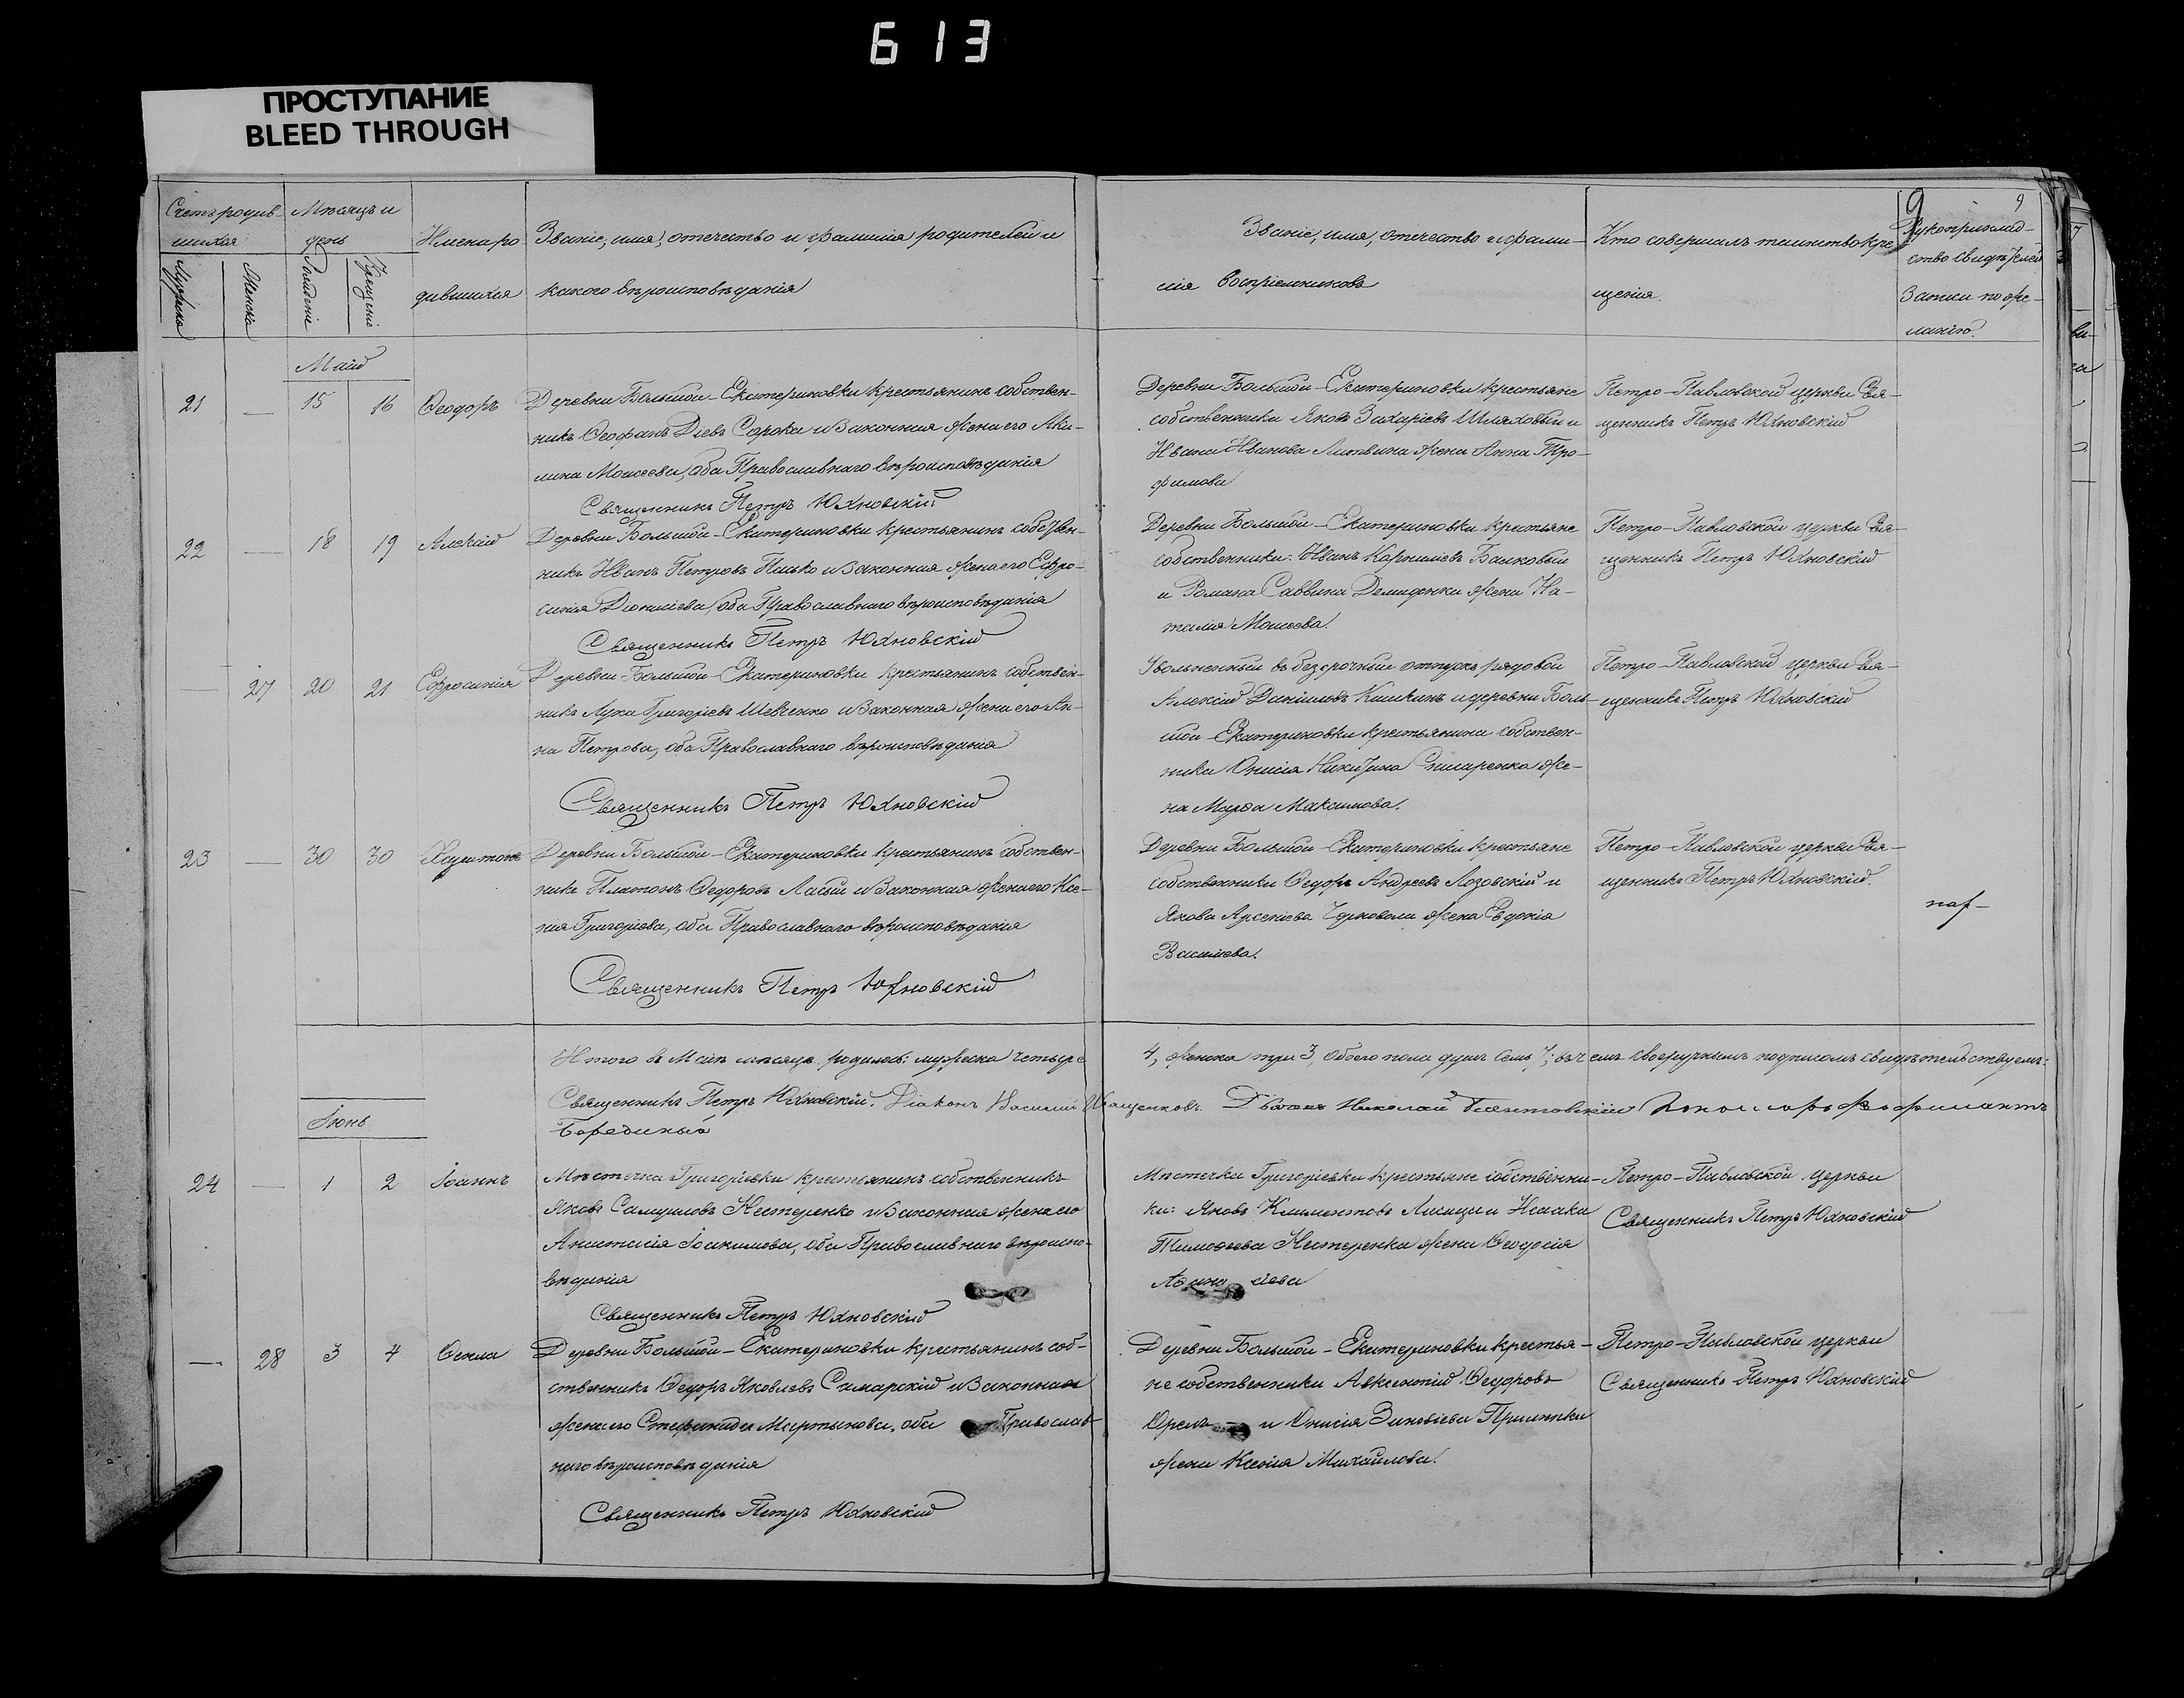 613
ПРОСТУПАНИЕ
BLEED THROUGH
Счетъ родив-
шихся
Мужеска
Женска
Мѣсяцъ и
день
Рожденіе
Крещеніе
Имена ро
дившихся
Званіе, имя, отечество и фамилія родителей и
какого вѣроисповѣданія
Званіе, имя, отечество и фами-
лія воспріемниковъ
Кто совершалъ таинство кре
щенія.
9
9
Рукоприклад-
ство свидѣтелей
записи по же-
ланію.
Маій
21 — 15 16 Ѳеодоръ
Деревни Большой-Екатериновки крестьянинъ собствен-
никъ Ѳеофанъ Діевъ Сорока и законная жена его Аки-
лина Моисеева, оба Православнаго вѣроисповѣданія
Священникъ Петръ Юхновскій
Деревни Большой-Екатериновки крестьяне
собственники Яковъ Захаріевъ Шляховый и
Ивана Иванова Литвина жена Анна Тро-
фимова
Петро-Павловской церкви Свя-
щенникъ Петръ Юхновскій
22 — 18 19 Алексій
Деревни Большой-Екатериновки крестьянинъ собствен-
никъ Иванъ Петровъ Писько и законная жена его Ефро-
синія Діонисіева, оба Православнаго вѣроисповѣданія
Священникъ Петръ Юхновскій
Деревни Большой-Екатериновки крестьяне
собственники: Иванъ Корниліевъ Байковый
и Романа Саввина Демиденка жена На-
талія Моисеева.
Петро-Павловской церкви Свя-
щенникъ Петръ Юхновскій
— 27 20 21 Ефросинія
Деревни-Большой-Екатериновки крестьянинъ собствен-
никъ Лука Григоріевъ Шевченко и законная жена его Ан-
на Петрова, оба Православнаго вѣроисповѣданія
Священникъ Петръ Юхновскій
Увольненный въ безсрочный отпускъ рядовой
Алексій Даніиловъ Кишкинъ и деревни Боль-
шой-Екатериновки крестьянина собствен-
ника Онисія Никитина Снисаренка же-
на Марѳа Максимова.
Петро-Павловской церкви Свя-
щенникъ Петръ Юхновскій
23 — 30 30 Харитонъ
Деревни Большой-Екатериновки крестьянинъ собствен-
никъ Платонъ Ѳедоровъ Лисый и законная жена его Ксе-
нія Григоріева, оба Православнаго вѣроисповѣданія
Священникъ Петръ Юхновскій
Деревни Большой-Екатериновки крестьяне
собственники Ѳедоръ Андреевъ Лозовскій и
Якова Арсеніева жена Евдокія
Василіева.
Петро-Павловской церкви Свя-
щенникъ Петръ Юхновскій.
Итого въ Маѣ мѣсяцѣ родилось: мужеска четыре
4, женска три 3, обоего пола душъ семь 7; въ чемъ своеручнымъ подписомъ свидѣтельствуемъ:
Священникъ Петръ Юхновскій. Діаконъ Василій Иващенковъ. Дьячокъ Николай
Іюнь
24 — 1 2 Іоаннъ
Мѣстечка Григорьевки крестьянинъ собственникъ
Яковъ Самуиловъ Нестеренко и законная жена его
Анастасія Іоакимова, оба Православнаго вѣроиспо-
вѣданія
Священникъ Петръ Юхновскій
Мѣстечка Григорьевки крестьяне собственни-
ки: Яковъ Климентовъ Лисица и Исаака
Тимоѳеева Нестеренка жена Ѳеодосія
Аѳанасіева
Петро-Павловской церкви
Священникъ Петръ Юхновскій
— 28 3 4 Ѳекла
Деревни Большой-Екатериновки крестьянинъ соб-
ственникъ Ѳедоръ Яковлевъ Самарскій и законная
жена его Стефанида Мартынова, оба Православ-
наго вѣроисповѣданія
Священникъ Петръ Юхновскій
Деревни Большой-Екатериновки крестья-
не собственники Авксентій Ѳедоровъ
Орелъ и Онисія Зиновіева Прилипка
жена Ксенія Михайлова.
Петро-Павловской церкви
Священникъ Петръ Юхновскій